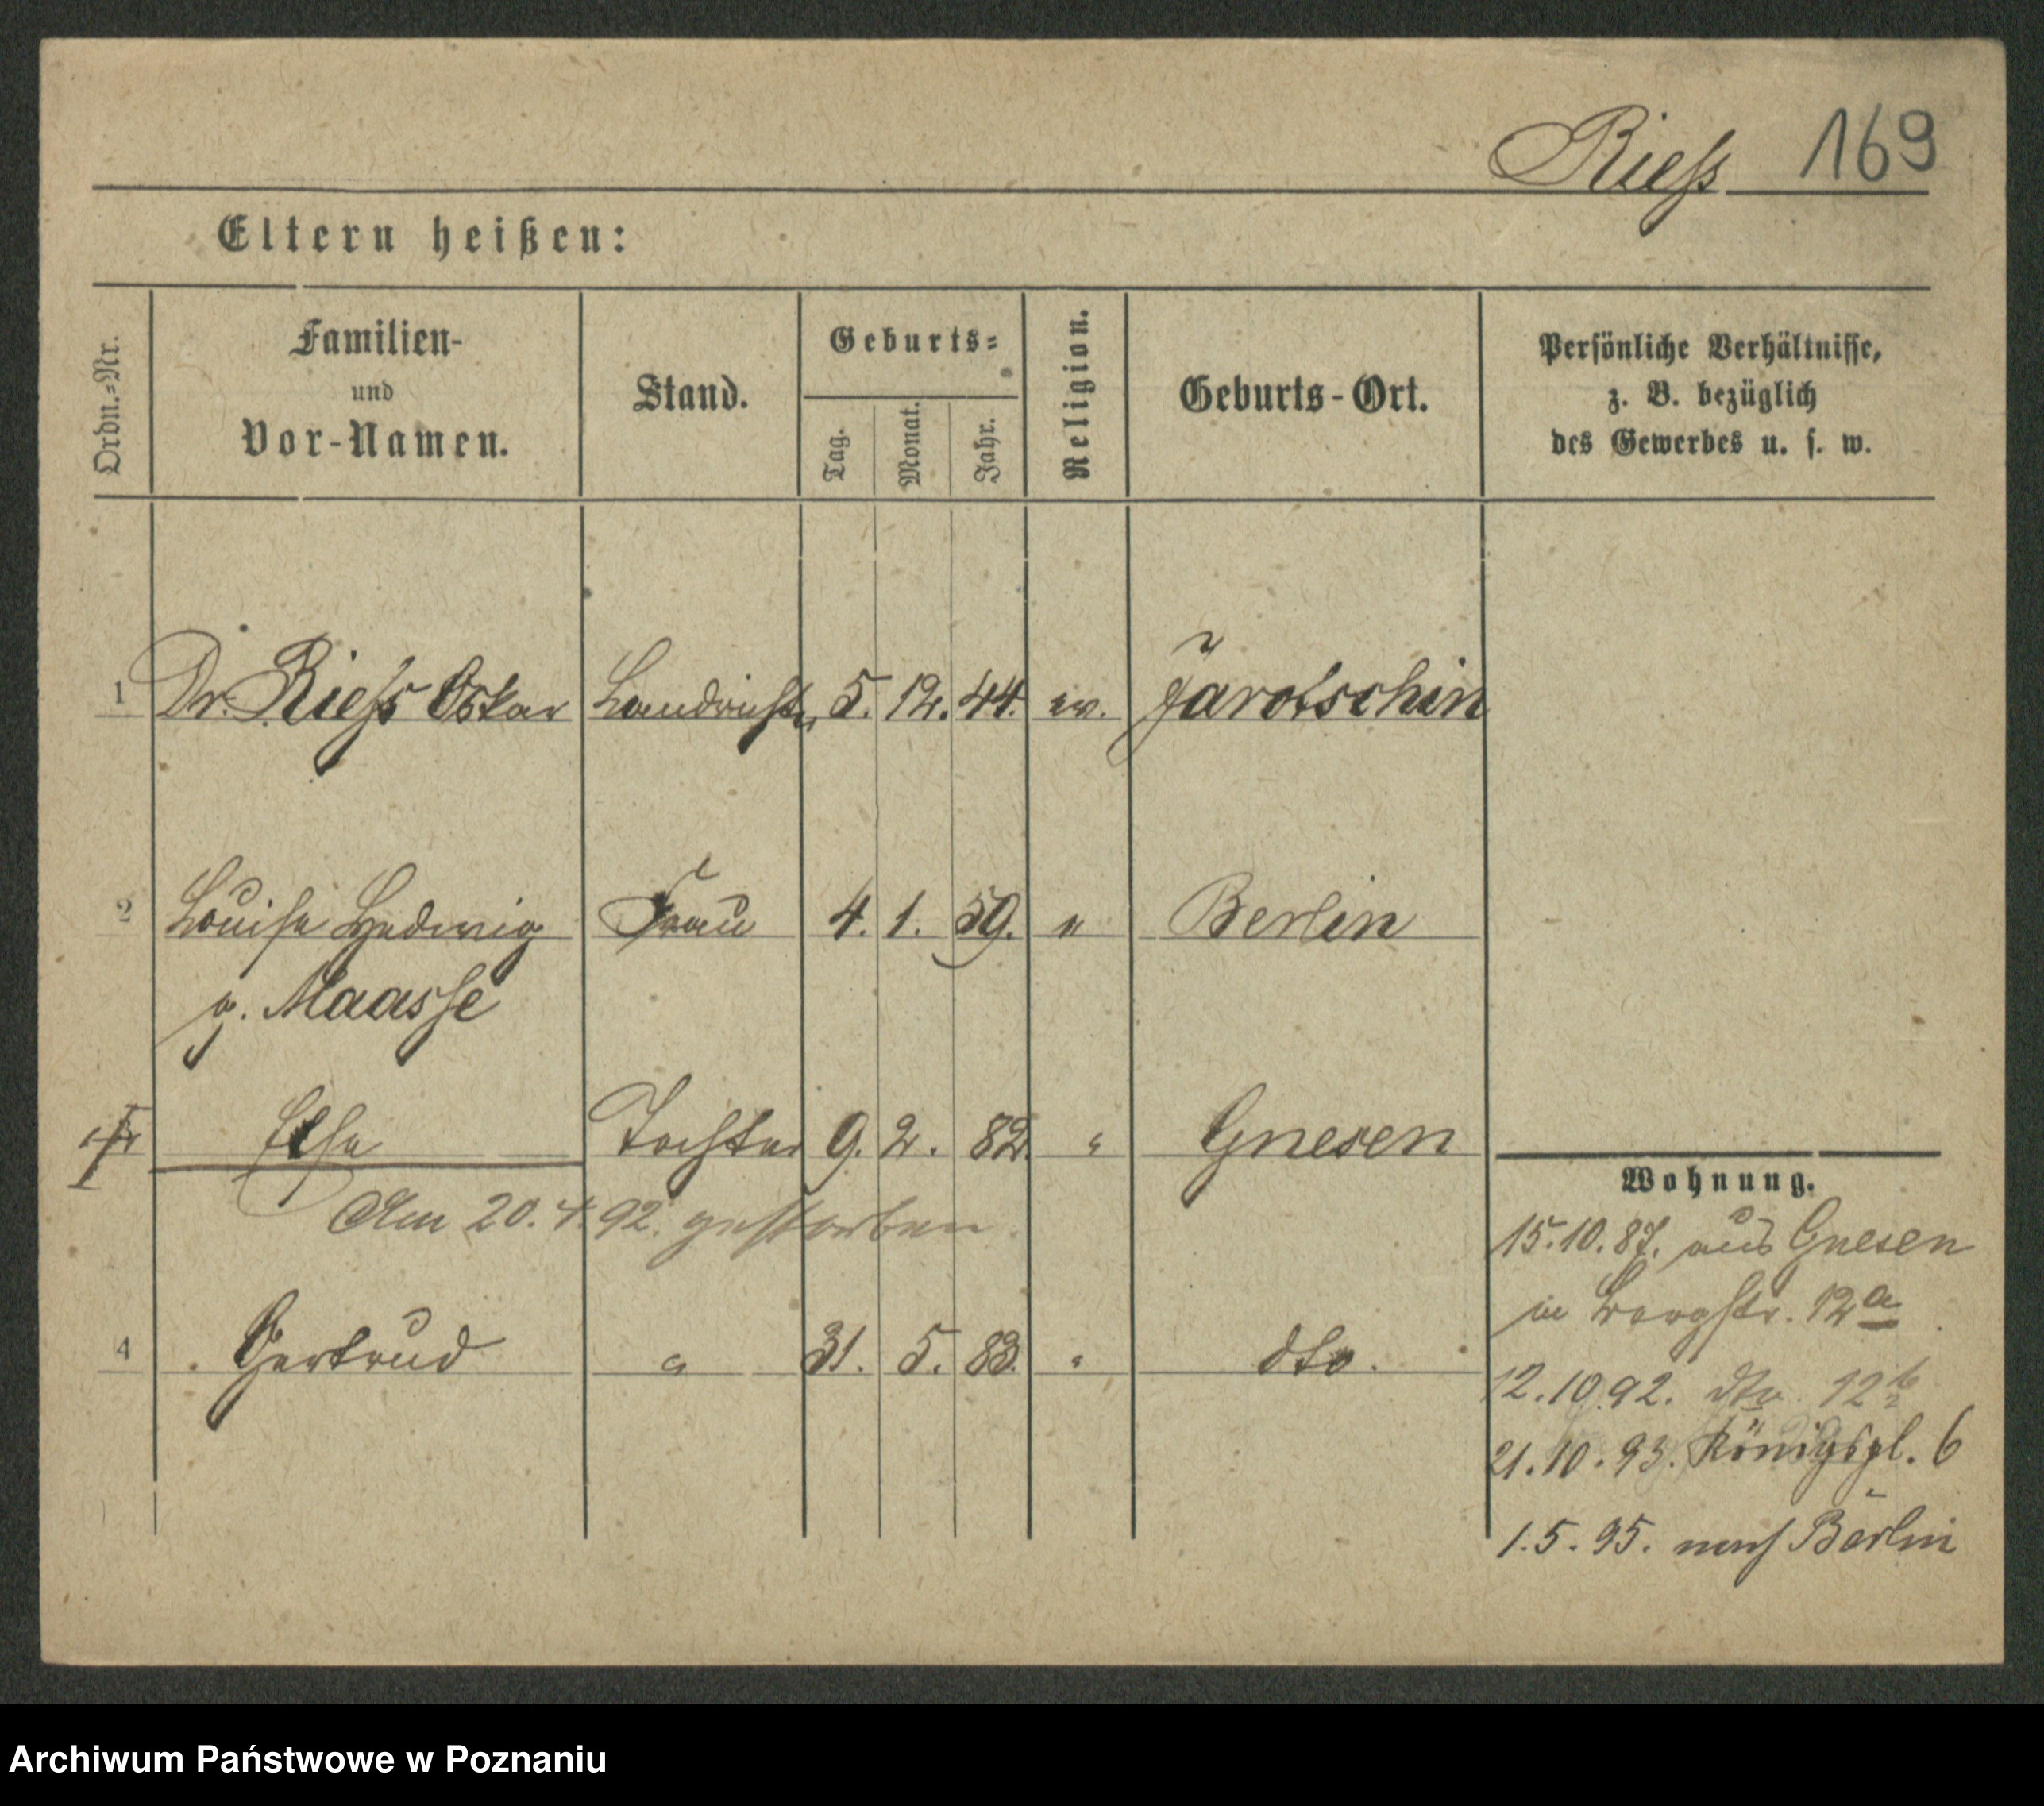 Rieß 169
Eltern heißen:
Ordn.=Nr.
Familien-
und
Vor-Namen.
Stand.
Geburts=
Tag.
Monat.
Jahr.
Religion.
Geburts-Ort.
Persönliche Verhältnisse,
z. B. bezüglich
des Gewerbes u. s. w.
1 Dr. Rieß Oskar Landrichter 5. 12. 44. ev. Jarotschin
2 Louise Hedwig Frau 4. 1. 59. " Berlin
g. Maasse
Else Tochter 9. 2. 82. " Gnesen
Am 20. 4. 92. gestorben
4 Gertrud " 31. 5. 83. " dto.
Wohnung.
15.10.87. aus Gnesen
in Bergstr. 12a
12.10.92. dto 12b
21.10.93. Königspl. 6
1.5.95. nach Berlin
Archiwum Państwowe w Poznaniu